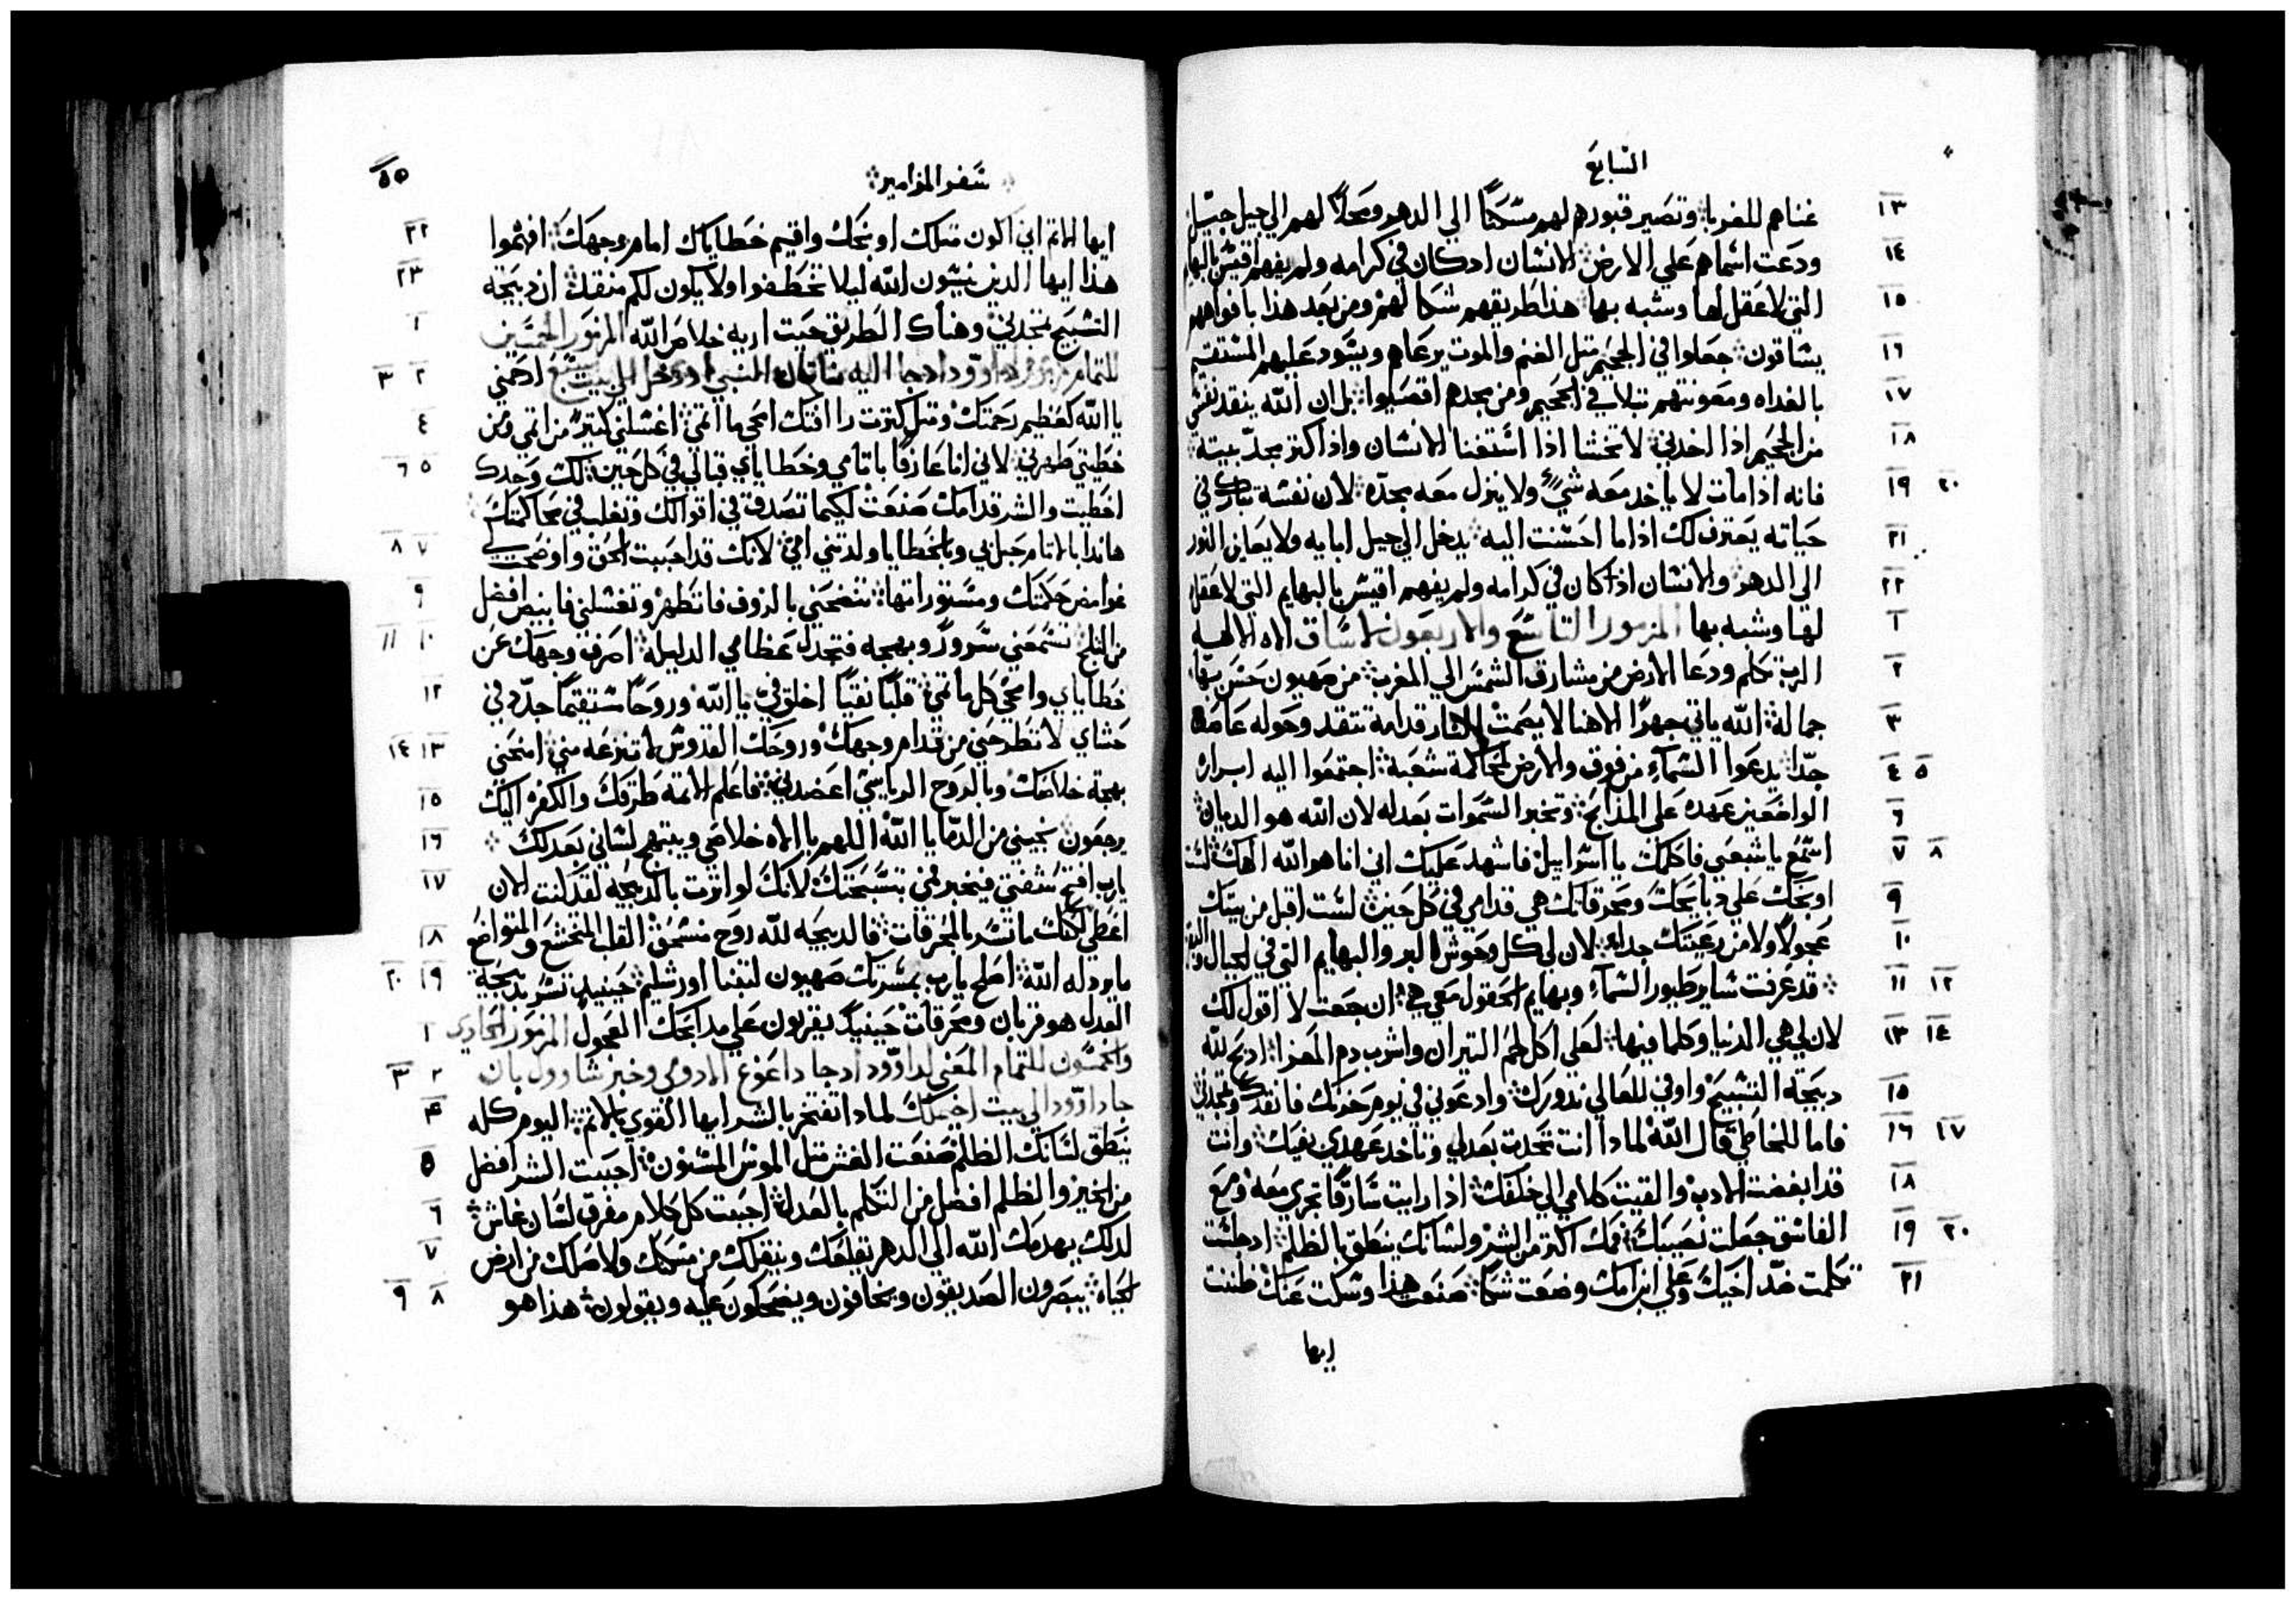 السابع
١٣ غناهم للغربا وتصير قبورهم لهم مسكنًا الي الدهر ومحلاً لهم الي جيل جيل
١٤ ودعت اسماهم علي الارض الانسان اذ كان في كرامه ولم يفهم اقيس بالبهايم
١٥ التي لا عقل لها وشبه بها هذا طريقهم شكا لهم ومن بعد هذا بافواههم
١٦ يساقون جعلوا في الجحيم متل الغنم والموت يرعاهم ويسود عليهم المستقيم
١٧ بالغداه ومعونتهم تبلا في الجحيم ومن مجدهم اقصيوا بل ان الله ينقد نفسي
١٨ من الجحيم اذا اخدني لا تخشا اذا استغنا الانسان واذا اكتر مجد بيته
١٩ ٢٠ فانه اذا مات لا ياخد معه شي ولا ينزل معه مجده لان نفسه تبارك في
٢١ حياته يعترف لك اذا ما احسنت اليه يدخل الي جيل ابايه ولا يعاين النور
٢٢ الي الدهر والانسان اذ كان في كرامه ولم يفهم اقيس بالبهايم التي لا عقل
١ لها وشبه بها المزمور التاسع والاربعون لاساف الاه الالهه
٢ الرب تكلم ودعا الارض من مشارق الشمس الي المغرب من صهيون حسن بها
٣ جماله الله ياتي جهرًا الاهنا لا يصمت النار قدامه تتقد وحوله عاصفه
٤ ٥ جدا يدعوا السماء من فوق والارض لمحاكمة شعبه اجتمعوا اليه ابراره
٦ الواضعين عهده علي المذابح وتخبر السموات بعدله لان الله هو الديان
٧ ٨ اسمع يا شعبي فاكلمك يا اسراييل فاشهد عليك اني انا هو الله الاهك لست
٩ اوبخك علي دبايحك ومحرقاتك هي قدامي في كل حين لست اقبل من بيتك
١٠ عجولاً ولا من رعيتك جداء لان لي كل وحوش البر والبهايم التي في الجبال
١١ ١٢ قد عرفت ساير طيور السماء وبهايم الحقول معي هي ان جعت لا اقول لك
١٣ ١٤ لان لي هي الدنيا وكلما فيها لعلي اكل لحم التيران واشرب دم المعزا ادبح لله
١٥ دبيحة التسبيح واوفي للعالي ندورك وادعوني في يوم حزنك فانقدك وتمجدني
١٦ ١٧ فاما للخاطي قال الله لمادا انت تحدت بعدلي وتاخد عهدي بفيك وانت
١٨ قد ابغضت الادب والقيت كلامي الي خلفك اذا رايت سارقًا تجري معه ومع
١٩ ٢٠ الفاسق جعلت نصيبك فمك اكتر من الشر ولسانك ينطق بالظلم اد جلست
٢١ تكلمت ضد اخيك وعلي ابن امك وضعت شكا صنعت هذا وسكت عنك ظننت
ايها
سفر المزامير
٥٥
٢٢ ايها الاتم اني اكون متلك اوبخك واقيم خطاياك امام وجهك افهموا
٢٣ هذا ايها الدين ينسون الله ليلا تخطفوا ولا يكون لكم منقد ان دبيحة
١ التسبيح تمجدني وهناك الطريق حيت اريه خلاص الله المزمور الخمسين
٢ ٣ للتمام مزمور داوود ادجا اليه ناتان النبي اد دخل الي بيت ارحمني
٤ يا الله كعظيم رحمتك ومتل كترت را افتك امحي ما اتمي اغسلني كتيرًا من اتمي ومن
٥ ٦ خطيتي طهرني لاني انا عارفًا باتامي وخطاياي قبالي في كل حين لك وحدك
اخطيت والشر قدامك صنعت لكيما تصدق في اقوالك وتغلب في محاكمتك
٧ ٨ هاندا بالاتام حبل بي وبالخطايا ولدتني امي لانك قد احببت الحق واوضحت لي
٩ غوامض حكمتك ومستوراتها تنضحني بالزوف فاتطهر وتغسلني فابيض افضل
١٠ ١١ من التلج تسمعني سرورًا وبهجه فتجدل عظامي الدليله اصرف وجهك عن
١٢ خطاياي وامحي كل ماتمي قلبًا نقيًا اخلق في يا الله وروحًا مستقيمًا جدد في
١٣ ١٤ حشاي لا تطرحني من قدام وجهك وروحك القدوس لا تنزعه مني امنحني
١٥ بهجة خلاصك وبالروح الرياسي اعضدني فاعلم الاتمه طرقك والكفره اليك
١٦ يرجعون نجيني من الدما يا الله اللهم يا الاه خلاصي ويبتهج لساني بعدلك
١٧ يارب افتح شفتي فيخبر فمي بتسبحتك لانك لو اترت بالدبيحه لقد كنت الان
١٨ اعطي لكنك ما تسر بالمحرقات فالدبيحه لله روح منسحق القلب المتخشع والمتواضع
١٩ ٢٠ ما يردله الله اصلح يارب بمسرتك صهيون لتبنا اورشليم حينيد تسر بدبيحة
١ العدل هو قربان ومحرقات حينيد يقربون علي مدابحك العجول المزمور الحادي
٢ ٣ والخمسون للتمام المعني لداوود ادجا داعوغ الادومي وخبر شاوول بان
٤ جا داوود الي بيت اخيملك لمادا تفتخر بالشر ايها القوي بالاتم اليوم كله
٥ ينطق لسانك الظلم صنعت الغش متل الموس المسنون احببت الشر افضل
٦ من الخير والظلم افضل من التكلم بالعدل احببت كل كلام مغرق لسان غاش
٧ لدلك يهدمك الله الي الدهر يقلعك وينقلك من مسكنك ولاصلك من ارض
٨ ٩ الحياه يبصرون الصديقون ويخافون ويضحكون عليه ويقولون هذا هو